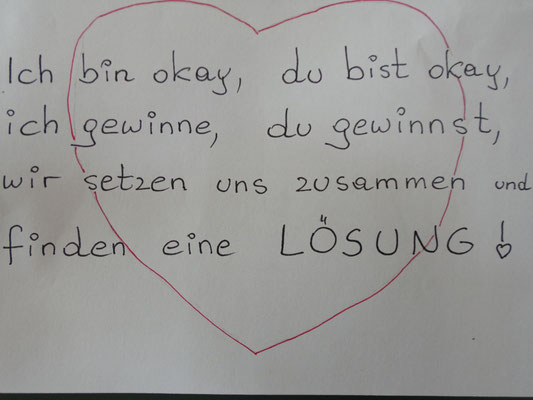 Ich bin okay, du bist okay,
ich gewinne, du gewinnst,
wir setzen uns zusammen und
finden eine LÖSUNG!